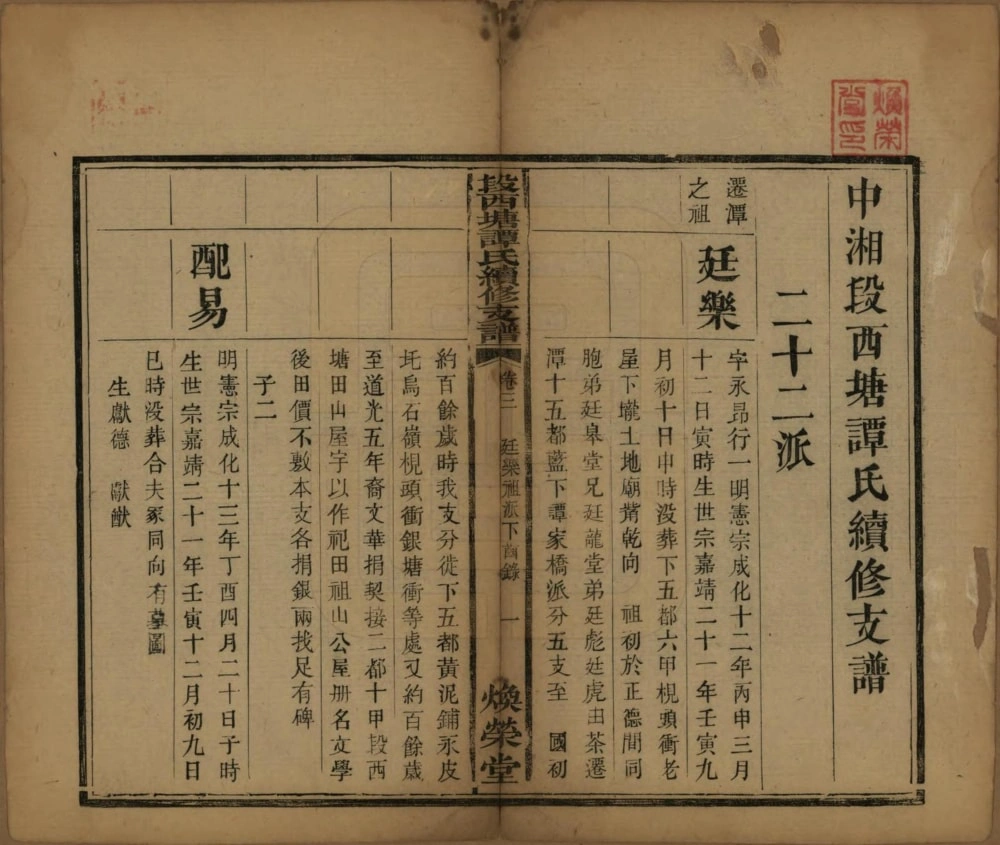 中湘段西塘譚氏續修支譜
二十二派
遷潭
之祖
廷樂
字永昂行一明憲宗成化十二年丙申三月
十二日寅時生世宗嘉靖二十一年壬寅九
月初十日申時没葬下五都六甲梘頭衝老
屋下壠土地廟背乾向 祖初於正德間同
胞弟廷皋堂兄廷龍堂弟廷彪廷虎由茶遷
潭十五都藍下譚家橋派分五支至 國初
段西塘譚氏續修支譜
卷三
廷樂祖派下齒錄
一
煥榮堂
約百餘歲時我支分徙下五都黃泥鋪永皮
圫烏石嶺梘頭衝銀塘衝等處又約百餘歲
至道光五年裔文華捐契接二都十甲段西
塘田山屋宇以作祀田祖山公屋册名文學
後田價不敷本支各捐銀兩找足有碑
子二
配易
明憲宗成化十三年丁酉四月二十日子時
生世宗嘉靖二十一年壬寅十二月初九日
巳時没葬合夫冢同向有墓圖
生獻德 獻猷
煥榮
堂印